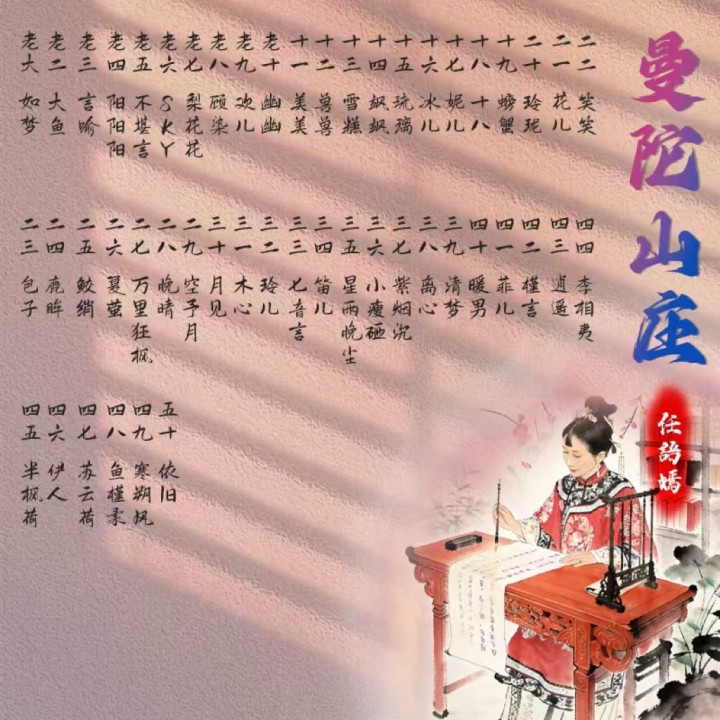 曼陀山庄
任語嫣
老大 如梦
老二 大鱼
老三 言喻
老四 阳阳阳
老五 不堪言
老六 SKY
老七 梨花花
老八 顾染
老九 欢儿
老十 幽幽
十一 美美
十二 兽兽
十三 雪糕
十四 飙飙
十五 琉璃
十六 冰儿
十七 妮儿
十八 十八
十九 螃蟹
二十 玲珑
二一 花儿
二二 笑笑
二三 包子
二四 鹿眸
二五 鲛绡
二六 夏萤
二七 万里狂枫
二八 晚晴
二九 空予月
三十 月见
三一 木心
三二 玲儿
三三 七音言
三四 笛儿
三五 星雨晚尘
三六 小瘦硒
三七 紫烟沉
三八 离心
三九 清梦
四十 暖男
四一 菲儿
四二 槿言
四三 逍遥
四四 李相夷
四五 半枫荷
四六 伊人
四七 苏云荷
四八 鱼槿素
四九 寒朔风
五十 依旧